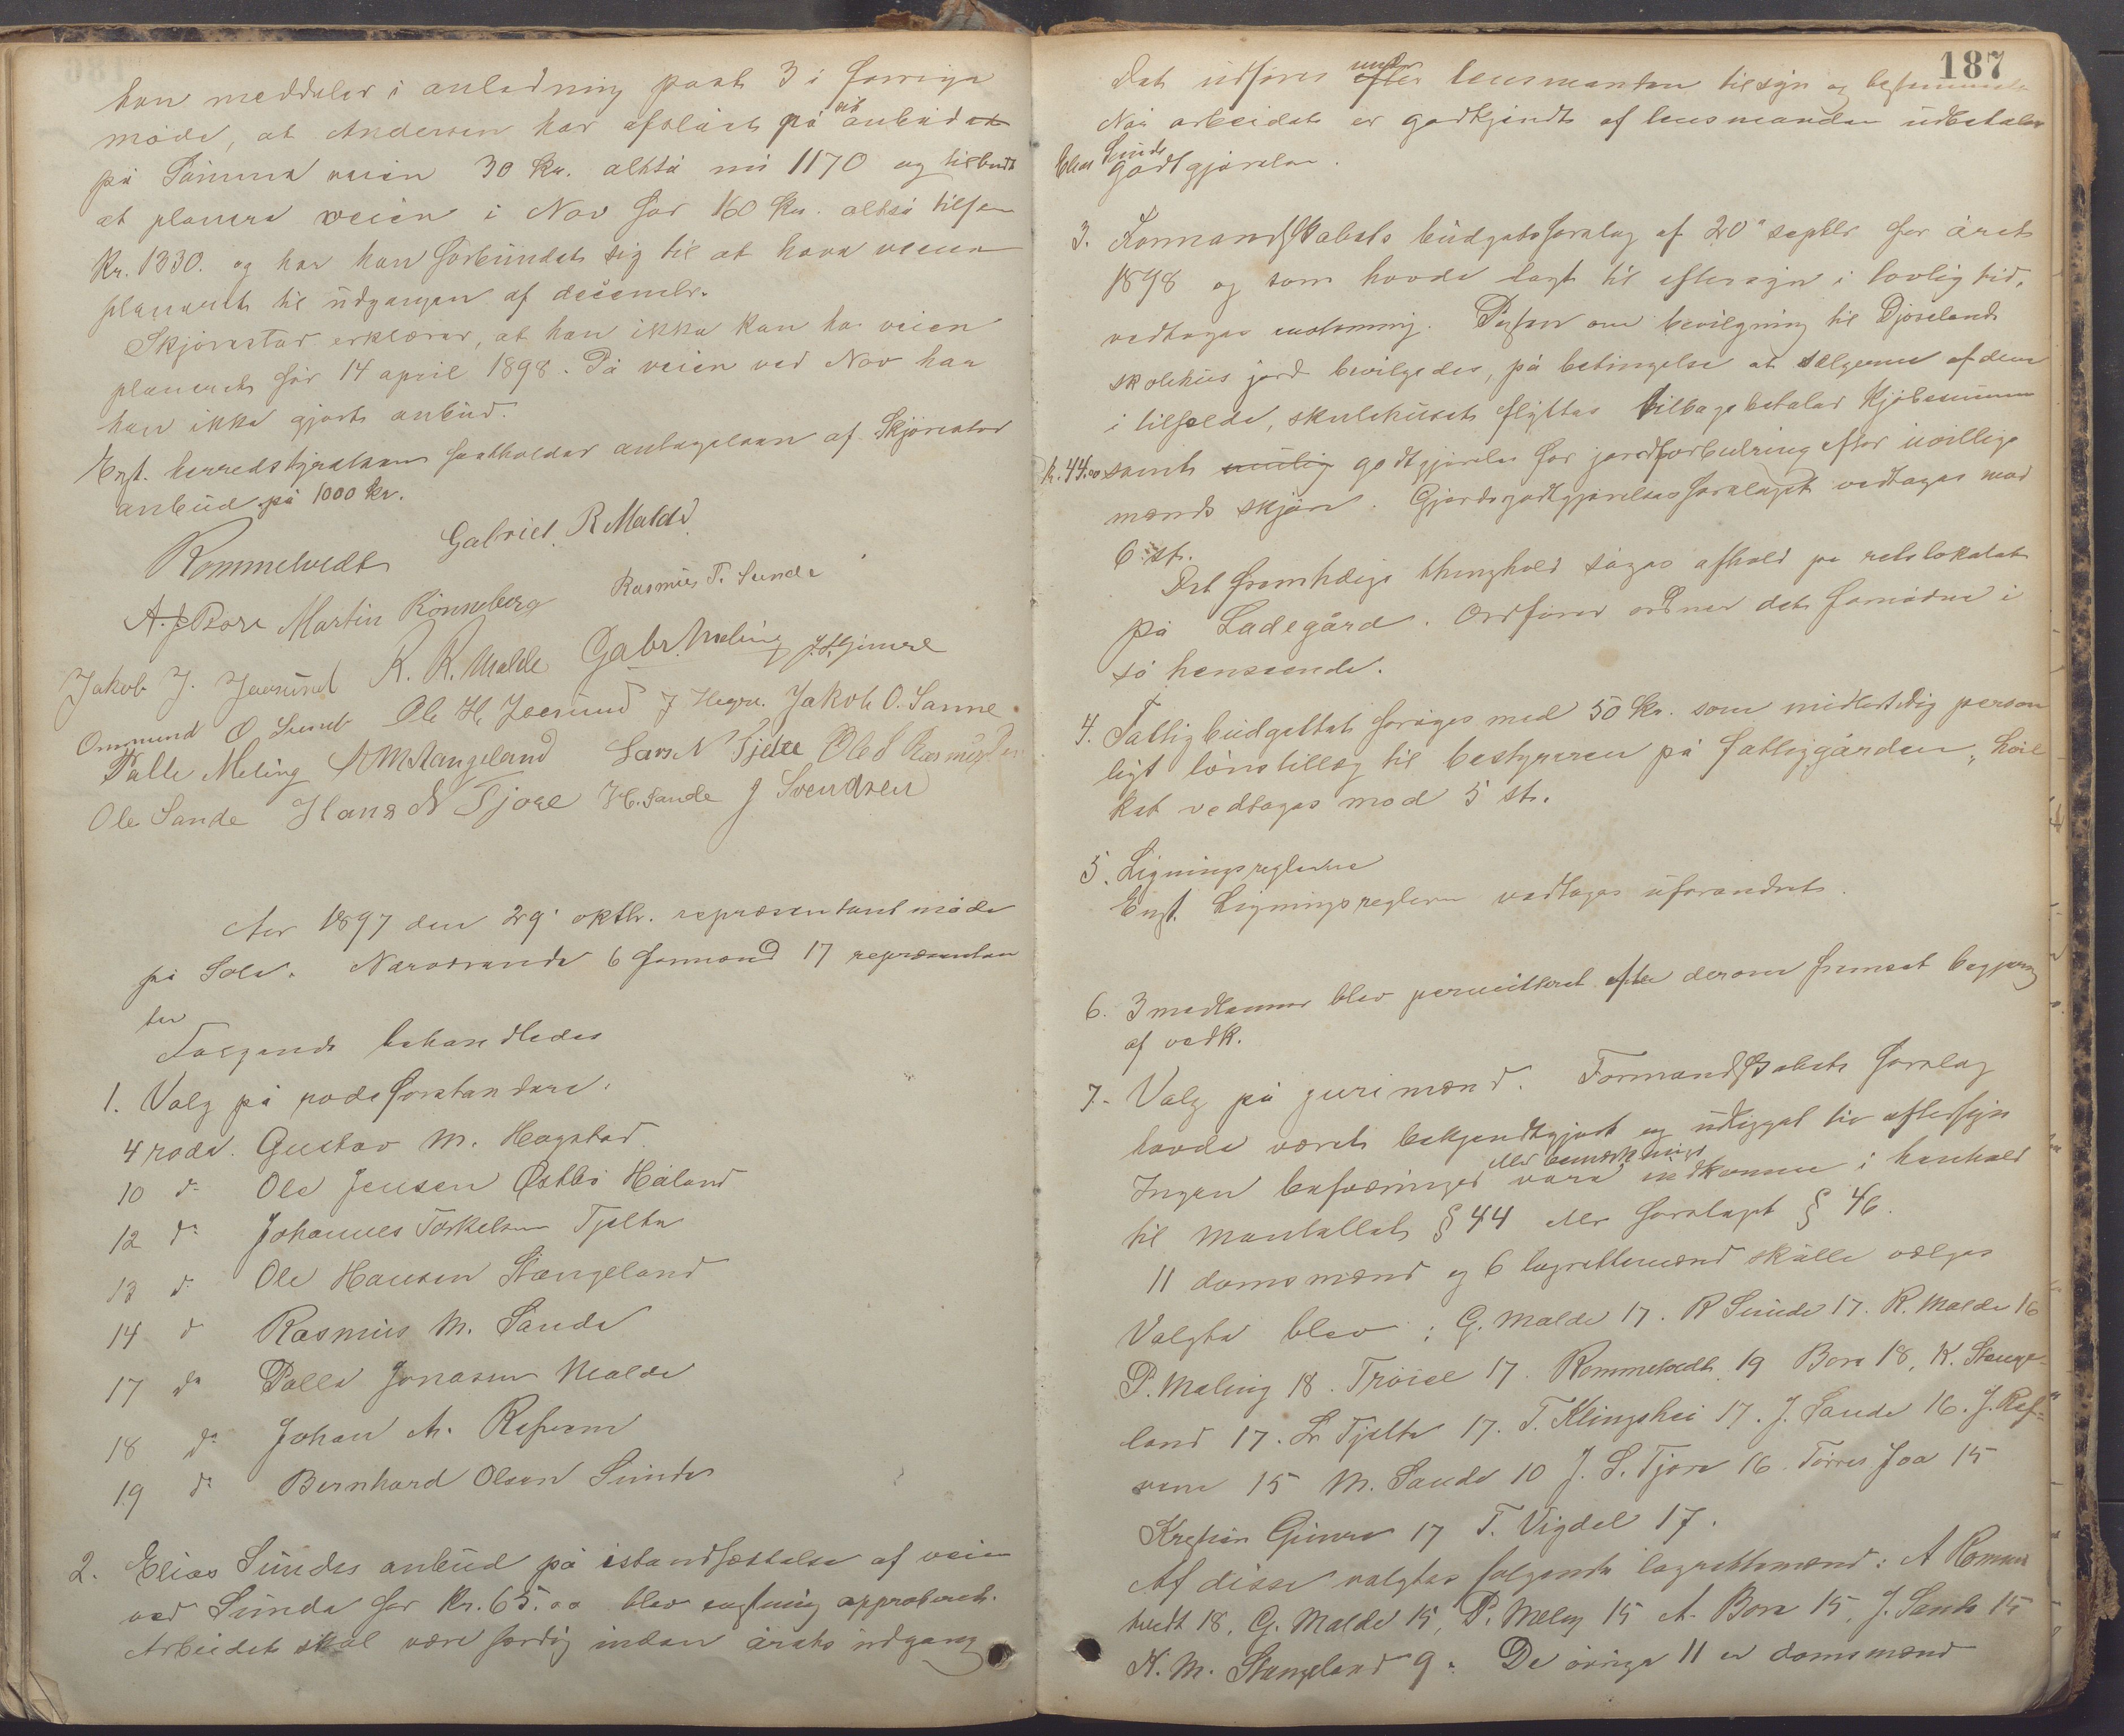 han meddeler i anledning post 3 i forrige
møde, at Andersen har afslået på sit anbud
på Sømme veien 30 kr. altså nu 1170 og tilbudt
at planere veien i Nov for 160 kr. altså tilsam
kr. 1330. og har han forbundet sig til at have veiene
planeret til udgangen af decembr.
Skjørestad erklærer, at han ikke kan ha veien
planeret før 14 april 1898. På veien ved Nov har
han ikke gjort anbud.
Enst. herredstyrelsen fastholder antagelsen af Skjørestad
anbud på 1000 kr.
Rommetvedt Gabriel R Malde
A. J Bore Martin Rönneberg Rasmus T. Sunde
Jakob J. Joasund R. R. Malde Gabr. Meling
Ommund O Sunde Ole H. Joasund J Hagre. Jakob O. Sømme
Palle Meling K M Stangeland Lars N Tjelta Ole S Rasmussen
Ole Sande Hans N Tjore H. Sande J Svendsen
Aar 1897 den 29. oktbr. repræsentantmøde
på Sola. Nærværende 6 formænd 17 repræsentan
ter
Følgende behandledes
1. Valg på rodeforstandere.
4 rode. Gustav M. Hogstad
10 do Ole Jensen Østbø Håland
12 do Johannes Torkelsen Tjelta
13 do Ole Hansen Stangeland
14 do Rasmus M. Sande
17 do Palle Jonasen Malde
18 do Johan A. Refsnes
19 do Bernhard Olsen Sunde
2. Elias Sundes anbud på istandsættelse af veien
ved Sunde for kr. 65.00 blev enstemig approberet.
Arbeidet skal være færdig inden årets udgang
187
Det udføres under efter lensmanden tilsyn og bestemmelse
Når arbeidet er godkjendt af lensmanden udbetales
Elias Sunde godtgjørelsen.
3. Formandskabets budgetsforslag af 20de septbr for året
1898 og som havde lagt til eftersyn i lovlig tid,
vedtoges enstemmig. Posten om bevilgning til Djoseland
skolehus jord bevilgedes, på betingelse at sælgerne af den
i tilfælde, skulehuset flyttes tilbagebetaler kjøbesummen
kr. 44.00 samt mulig godtgjørelse for jordforbedring efter uvillige
mænds skjøn. Gjordsgodtgjørelsesforslaget vedtoges mod
6 st.
Det fremtidige thinghold søges afhold på retslokalet
på Ladegård. Ordfører ordner det fornødne i
så henseende.
4. Fattigbudgettet forøges med 50 kr. som midlertidig person
ligt lønstillæg til bestyreren på fattiggården, hvil
ket vedtoges mod 5 st.
5. Ligningsreglerne
Enst. Ligningsreglerne vedtoges uforandret.
6. 3 medlemmer blev permitteret efter derom fremsat begjæring
af vedk.
7. Valg på jurimænd. Formandskabets forslag
havde været bekjendtgjort og udlagt til eftersyn
Ingen besværinger eller bemærkninger vare indkomne i henhold
til Mantallet § 44 eller forslaget § 46.
11 domsmænd og 6 lagrettemænd skulle vælges
Valgte blev: G. Malde 17. R Sunde 17. R. Malde 16
P. Meling 18. Trøiel 17. Rommetvedt 19 Bore 18, K. Stange-
land 17. L Tjelta 17. T. Klingshei 17. J. Sande 16. J. Ref-
snes 15 M. Sande 10 J. S. Tjora 16. Torres Joa 15
Kristian Gimre 17 T. Vigdel 17.
Af disse valgtes følgende lagrettemænd: A Rommet
tvedt 18, G. Malde 15, P. Meling 15 A. Bore 15, J. Sande 15
K. M. Stangeland 9. De øvrige 11 er domsmænd